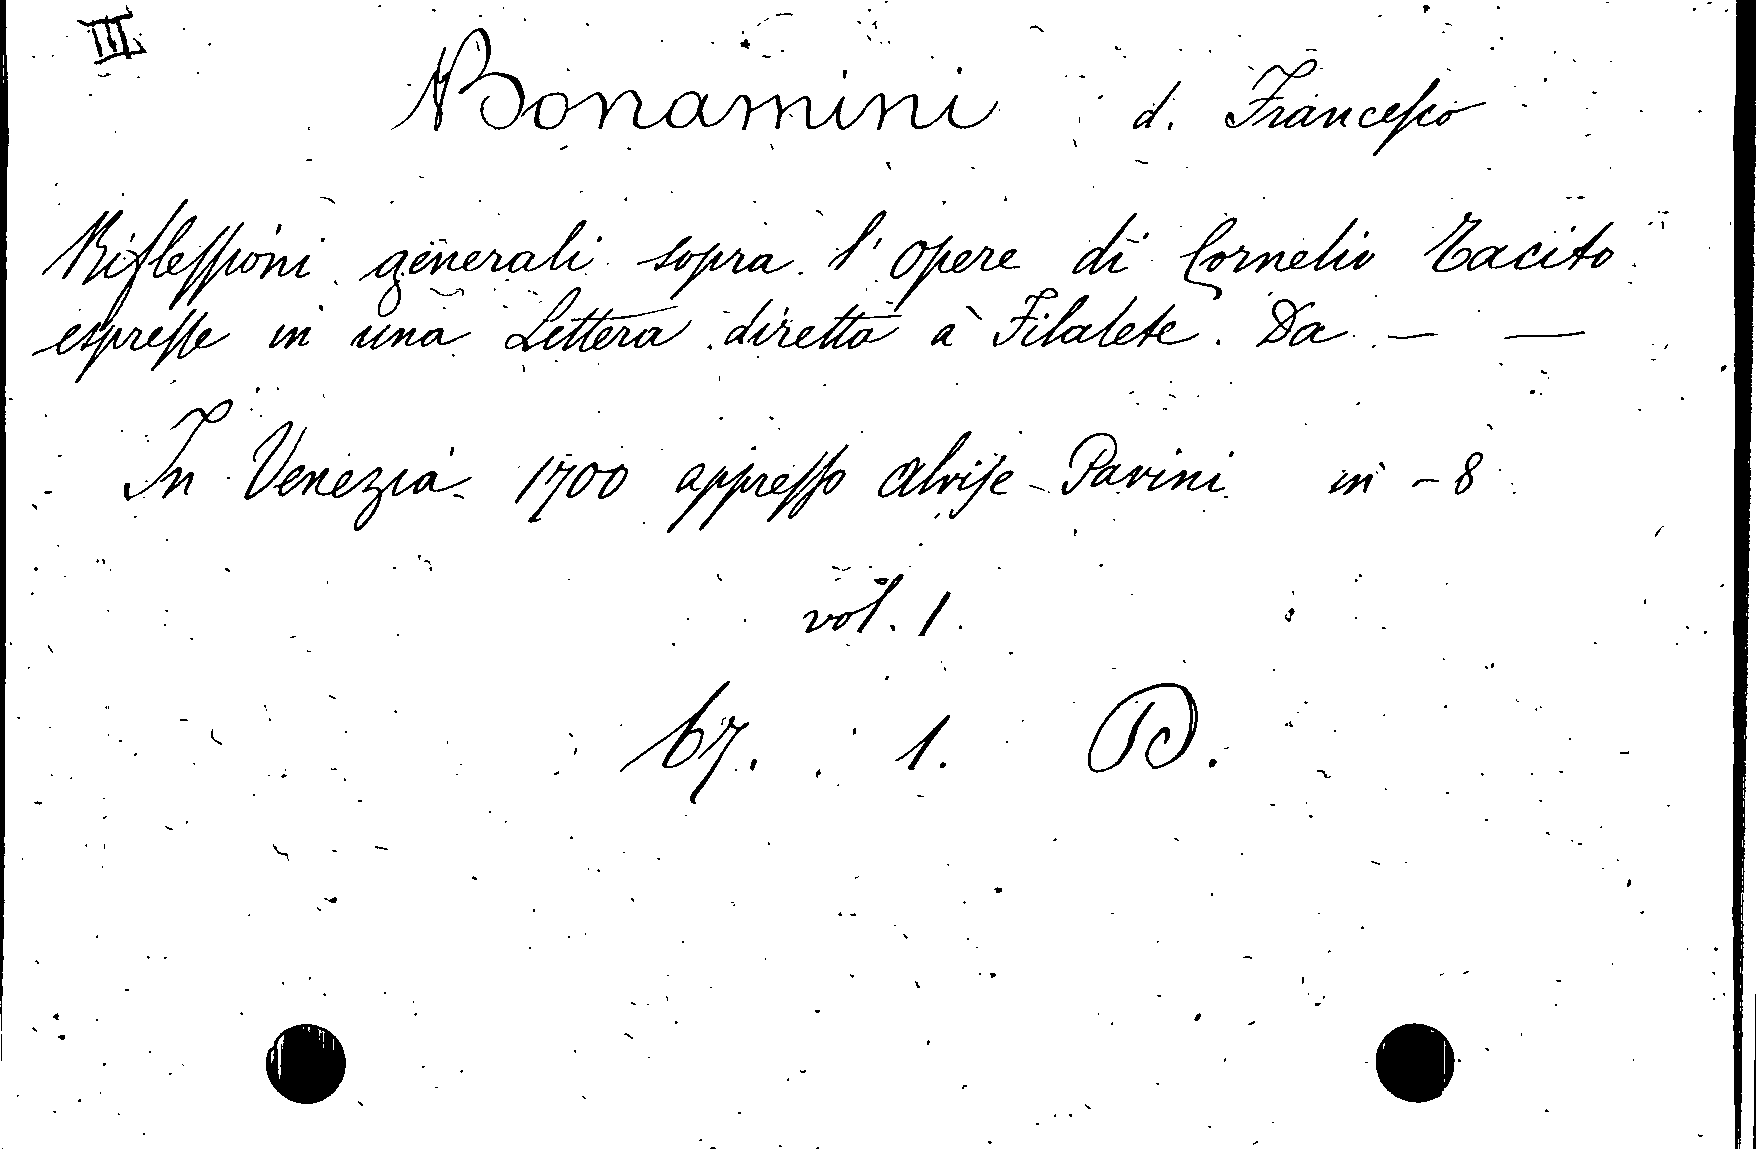 III.
Bonamini d. Francesco
Riflessioni generali sopra l'opere di Cornelio Tacito
espresse in una Lettera diretta à Filalete. Da — —
In Venezia 1700 appresso Alvise Pavini in - 8
vol. 1.
67. 1. D.